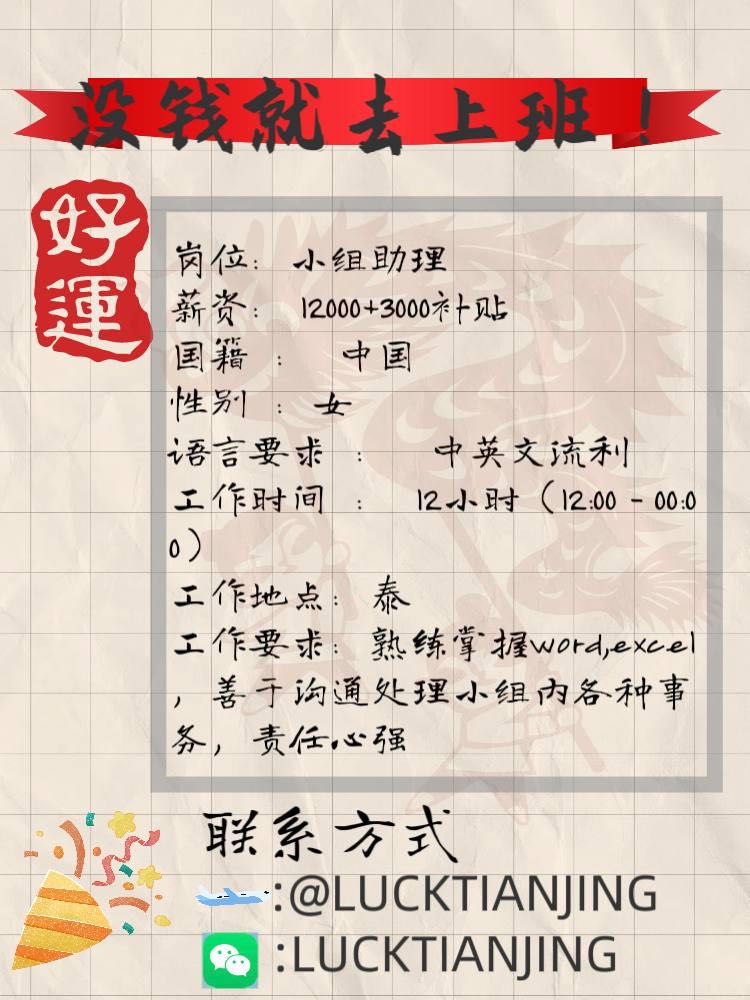 没钱就去上班！
好運
岗位： 小组助理
薪资： 12000+3000补贴
国籍 ： 中国
性别 ： 女
语言要求 ： 中英文流利
工作时间 ： 12小时（12:00 - 00:0
0）
工作地点： 泰
工作要求： 熟练掌握word,excel
，善于沟通处理小组内各种事
务，责任心强
联系方式
:@LUCKTIANJING
:LUCKTIANJING